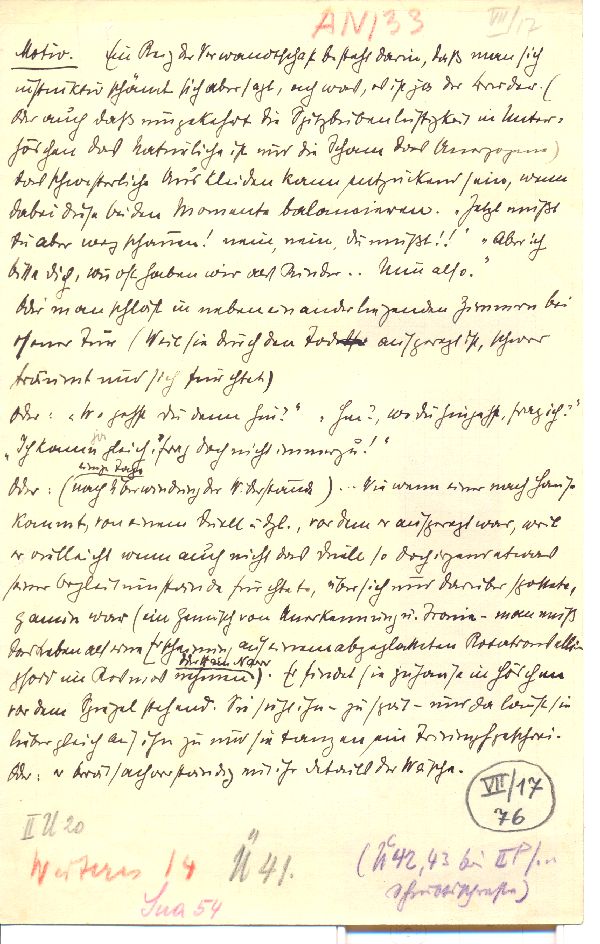 AN/33 VII/17
Motiv. Ein Reiz der Verwandtschaft besteht darin, daß man sich
instinktiv schämt sich aber sagt, ach was, es ist ja der Bruder. (
Oder auch daß umgekehrt die Spitzbubenlustigkeit in Unter-
höschen das Natürliche ist und die Scham das Anerzogene)
Das schwesterliche Auskleiden kann entzückend sein, wenn
dabei diese beiden Momente balancieren. „Jetzt mußt
du aber wegschauen! nein, nein, du mußt!!" „Aber ich
bitte dich, wie oft haben wir als Kinder .. Nun also."
Oder man schläft in nebeneinanderliegenden Zimmern bei
offener Tür (Weil sie durch den Tod aufgeregt ist, schwer
träumt und sich fürchtet)
Oder: „Wo gehst du denn hin?" „Hin?, wo du hingehst, frag ich?"
„Ich komm ja gleich; frag doch nicht immerzu!"
einige Tage
Oder: (nach Überwindung der Widerstände) .. Wie wenn einer nach Hause
kommt, von einem Duell u. dgl., vor dem er aufgeregt war, weil
er vielleicht wenn auch nicht das Duell so doch irgendetwas
seiner Begleitumstände fürchtete, über sich und darüber spottete,
gamin war (ein Gemisch von Anerkennung u. Ironie – man muß
das Leben als eine Erscheinung auf einem abgeplatteten Rotationsellip-
soid im Kosmos nehmen). Er findet sie zuhause in Höschen
vor dem Spiegel stehend. Sie sieht ihn – zu spät – und da lauft sie
lieber gleich auf ihn zu und sie tanzen ein Triumphgeschrei.
Oder: er berät sachverständig mit ihr details der Wäsche.
VII/17
76
II Ü 20
Weiteres 14 Ü 41.
(Ü 42, 43 bei II P
Schreibtischmappe)
54